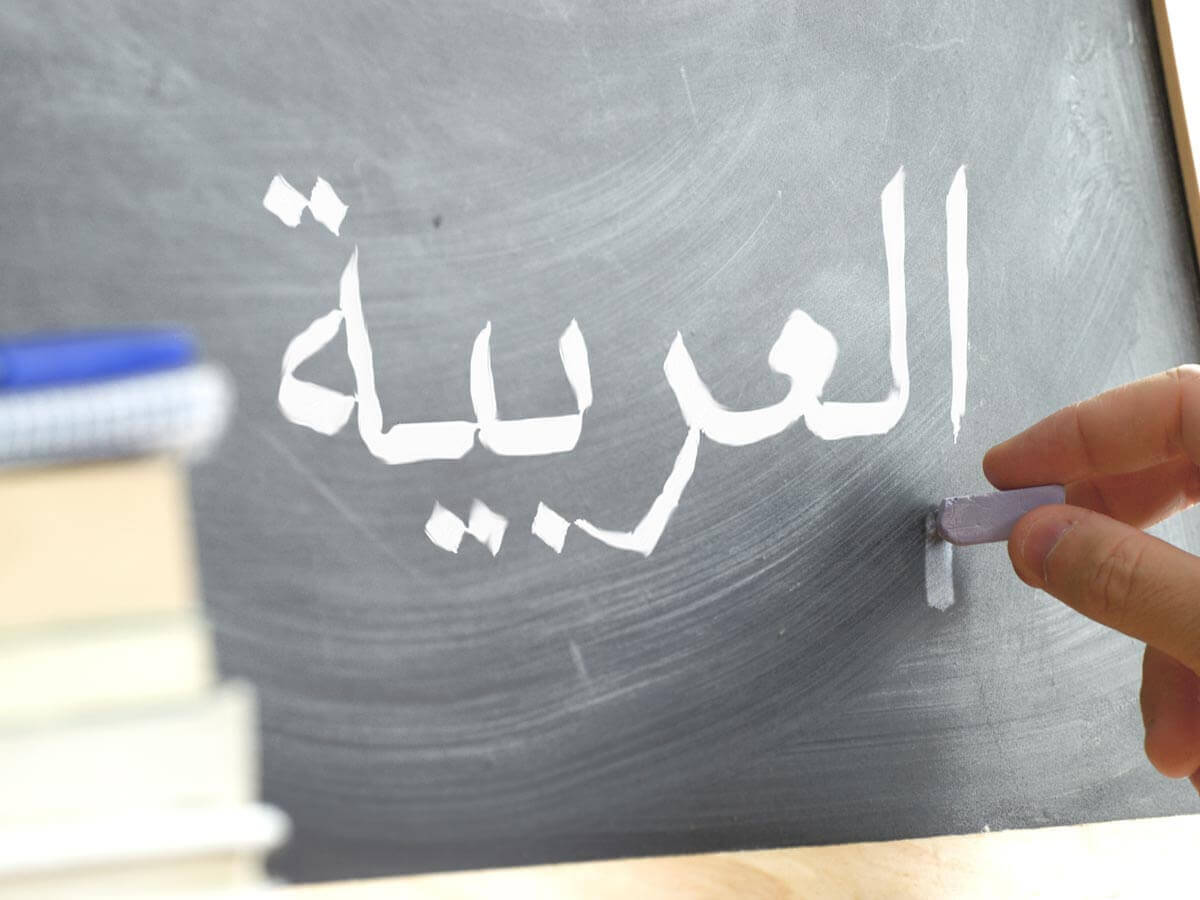 العربية